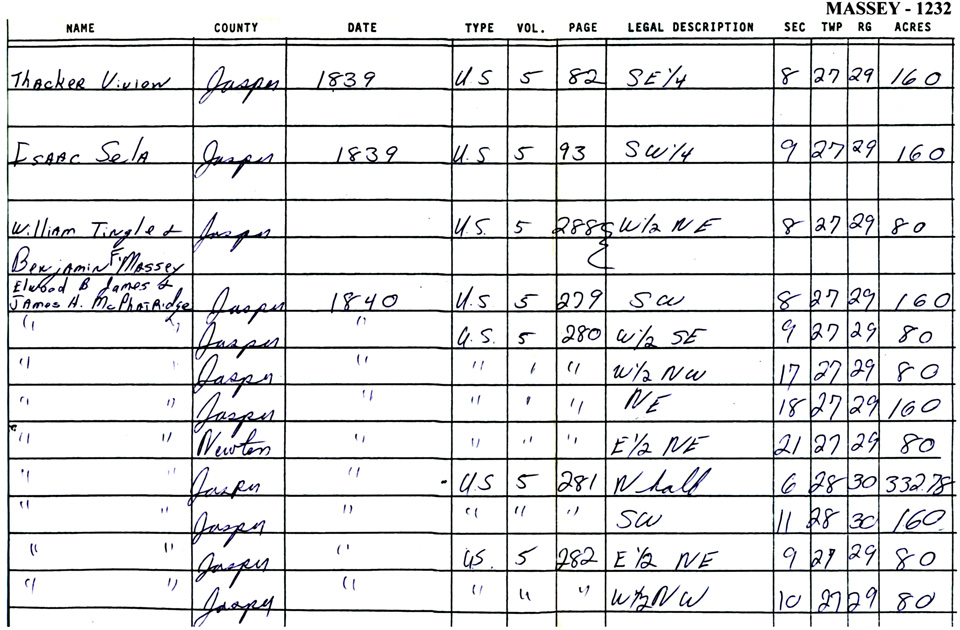 MASSEY - 1232
NAME COUNTY DATE TYPE VOL. PAGE LEGAL DESCRIPTION SEC TWP RG ACRES
Thacker Vivion Jasper 1839 U.S 5 82 SE 1/4 8 27 29 160
Isaac Sela Jasper 1839 U.S 5 93 SW 1/4 9 27 29 160
William Tingle & Jasper U.S. 5 288 W 1/2 NE 8 27 29 80
Benjamin F. Massey
Elwood B James &
James H. McPhatridge Jasper 1840 U.S 5 279 SW 8 27 29 160
" " Jasper " U.S. 5 280 W 1/2 SE 9 27 29 80
" " Jasper " " " " W 1/2 NW 17 27 29 80
" " Jasper " " " " NE 18 27 29 160
" " Newton " " " " E 1/2 NE 21 27 29 80
" " Jasper " U.S 5 281 N half 6 28 30 332.78
" " Jasper " " " " SW 11 28 30 160
" " Jasper " US. 5 282 E 1/2 NE 9 27 29 80
" " Jasper " " " " W 1/2 NW 10 27 29 80